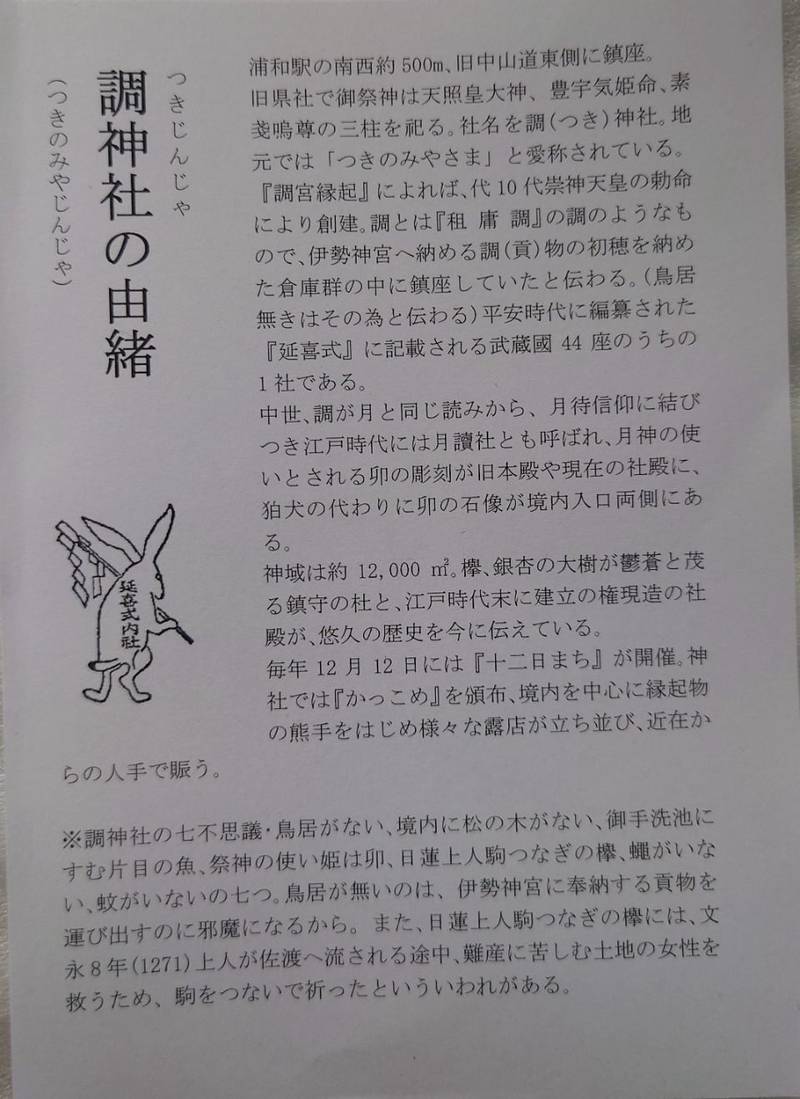 つきじんじゃ
調神社の由緒
(つきのみやじんじゃ)
浦和駅の南西約500m、旧中山道東側に鎮座。
旧県社で御祭神は天照皇大神、豊宇気姫命、素
戔嗚尊の三柱を祀る。社名を調(つき)神社。地
元では「つきのみやさま」と愛称されている。
『調宮縁起』によれば、代10代崇神天皇の勅命
により創建。調とは『租 庸 調』の調のようなも
ので、伊勢神宮へ納める調(貢)物の初穂を納め
た倉庫群の中に鎮座していたと伝わる。(鳥居
無きはその為と伝わる)平安時代に編纂された
『延喜式』に記載される武蔵國44座のうちの
1社である。
中世、調が月と同じ読みから、月待信仰に結び
つき江戸時代には月讀社とも呼ばれ、月神の使
いとされる卯の彫刻が旧本殿や現在の社殿に、
狛犬の代わりに卯の石像が境内入口両側にあ
る。
神域は約 12,000 ㎡。欅、銀杏の大樹が鬱蒼と茂
る鎮守の杜と、江戸時代末に建立の権現造の社
殿が、悠久の歴史を今に伝えている。
毎年12月12日には『十二日まち』が開催。神
社では『かっこめ』を頒布、境内を中心に縁起物
の熊手をはじめ様々な露店が立ち並び、近在か
らの人手で賑う。
延喜式内社
※調神社の七不思議・鳥居がない、境内に松の木がない、御手洗池に
すむ片目の魚、祭神の使い姫は卯、日蓮上人駒つなぎの欅、蠅がいな
い、蚊がいないの七つ。鳥居が無いのは、伊勢神宮に奉納する貢物を
運び出すのに邪魔になるから。また、日蓮上人駒つなぎの欅には、文
永8年(1271)上人が佐渡へ流される途中、難産に苦しむ土地の女性を
救うため、駒をつないで祈ったといういわれがある。